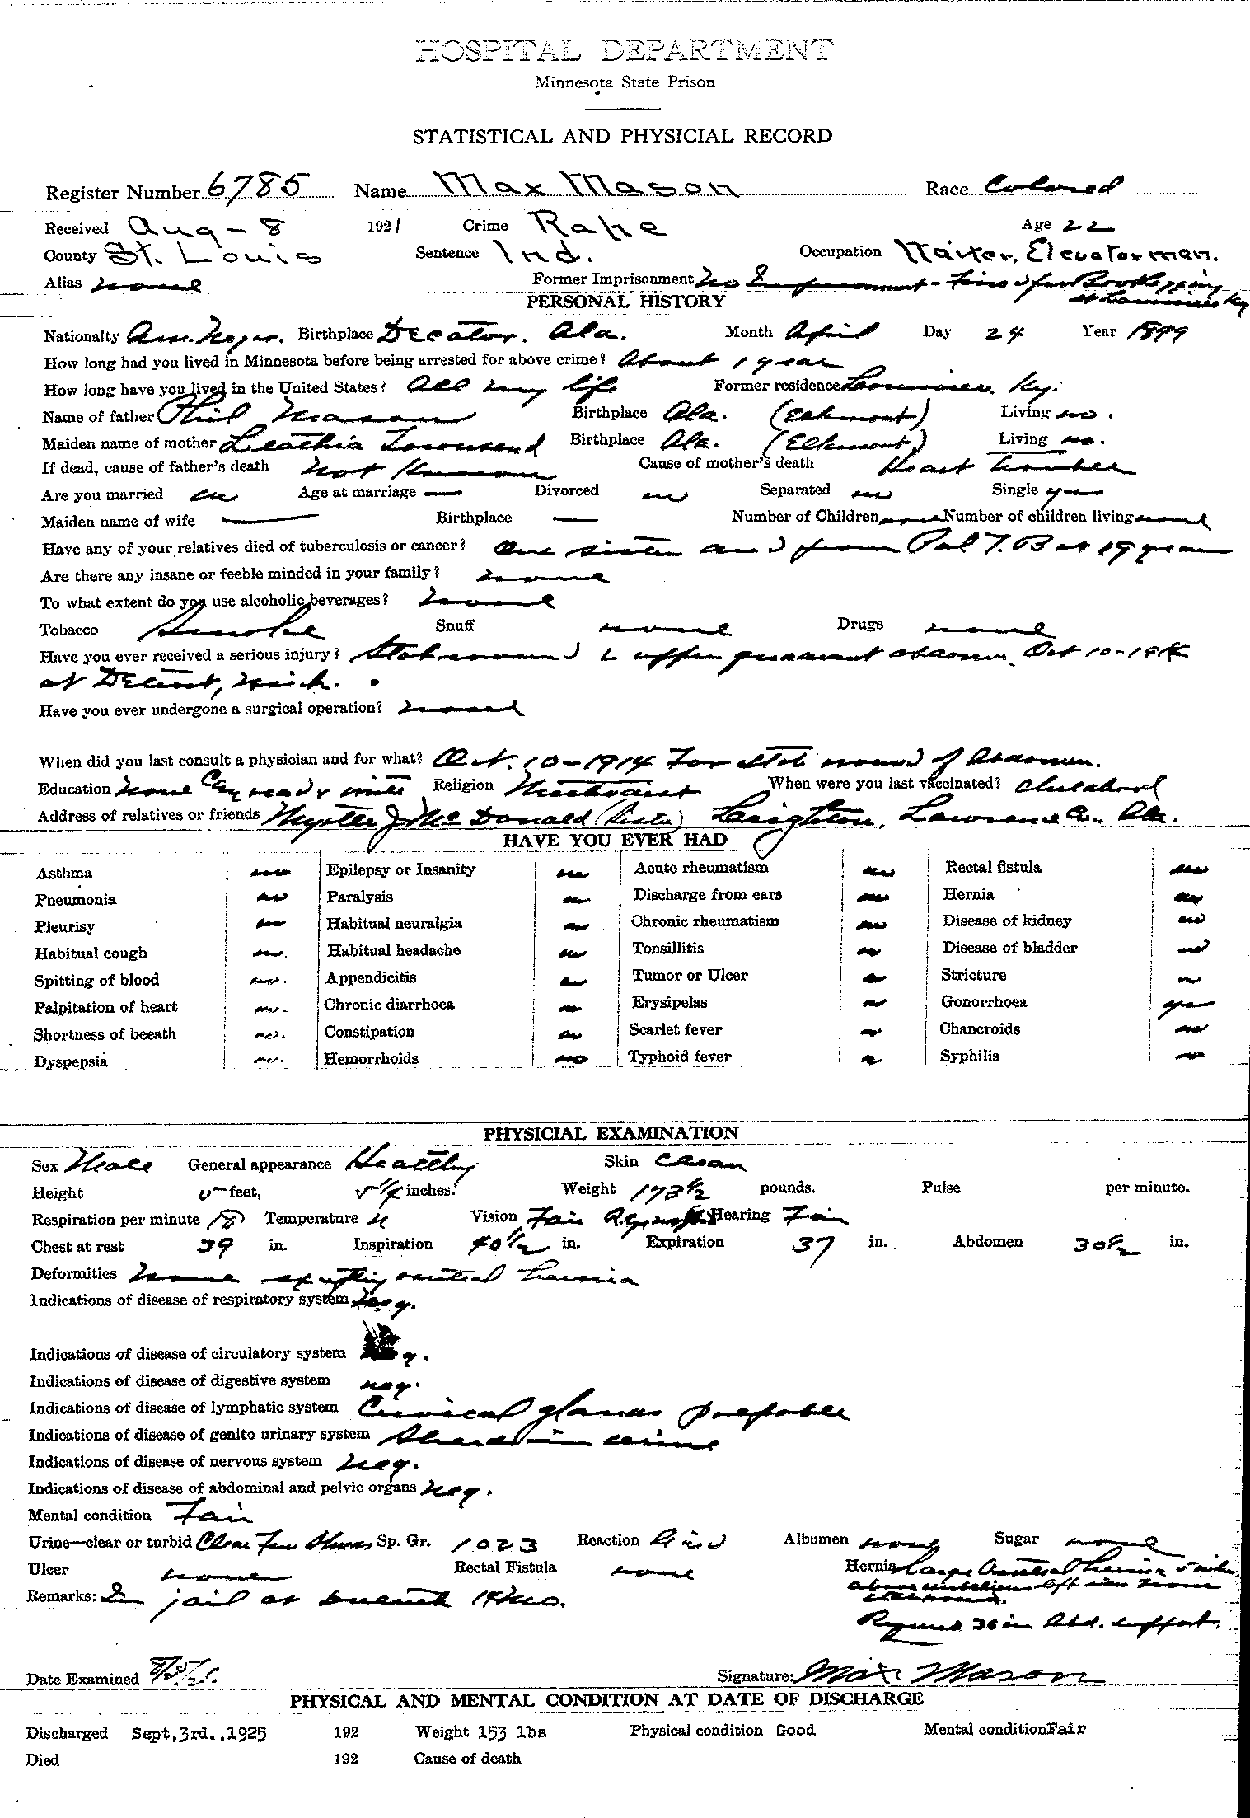 HOSPITAL DEPARTMENT
Minnesota State Prison
STATISTICAL AND PHYSICIAL RECORD
Register Number 6785 Name Max Mason Race Colored
Received Aug - 8 1921 Crime Rape Age 22
County St. Louis Sentence Ind. Occupation Waiter, Elevatorman.
Alias none Former Imprisonment no
PERSONAL HISTORY
Nationalty Am. Negro. Birthplace Decator, Ala. Month April Day 24 Year 1899
How long had you lived in Minnesota before being arrested for above crime? About 1 year
How long have you lived in the United States? All my life Former residence Ky.
Name of father Phil Mason Birthplace Ala. (Elkmont) Living no.
Maiden name of mother Leathia Townsend Birthplace Ala. (Elkmont) Living no.
If dead, cause of father's death not known Cause of mother's death Heart trouble
Are you married no Age at marriage — Divorced no Separated no Single yes
Maiden name of wife — Birthplace — Number of Children none Number of children living none
Have any of your relatives died of tuberculosis or cancer? One sister from Pul T.B at 19 years
Are there any insane or feeble minded in your family? none
To what extent do you use alcoholic beverages? none
Tobacco Smoke Snuff none Drugs none
Have you ever received a serious injury? Stab wound abdomen, Oct 10-1914
at Detroit, Mich.
Have you ever undergone a surgical operation? none
When did you last consult a physician and for what? Oct. 10-1914 For stab wound of Abdomen.
Education none Can read & write Religion When were you last vaccinated? childhood
Address of relatives or friends Donald Leighton, Lawrence Co. Ala.
HAVE YOU EVER HAD
Asthma no Epilepsy or Insanity no Acute rheumatism no Rectal fistula no
Pneumonia no Paralysis no Discharge from ears no Hernia no
Pleurisy no Habitual neuralgia no Chronic rheumatism no Disease of kidney no
Habitual cough no. Habitual headache no Tonsillitis no Disease of bladder no
Spitting of blood no. Appendicitis no Tumor or Ulcer no Stricture no
Palpitation of heart no. Chronic diarrhoea no Erysipelas no Gonorrhoea yes
Shortness of breath no. Constipation no Scarlet fever no Chancroids no
Dyspepsia no. Hemorrhoids no Typhoid fever no Syphilis no
PHYSICIAL EXAMINATION
Sex Male General appearance Healthy Skin Clean
Height 5 feet, 5 1/4 inches. Weight 173 1/2 pounds. Pulse per minute.
Respiration per minute 18 Temperature N Vision Fair Hearing Fair
Chest at rest 39 in. Inspiration 40 1/2 in. Expiration 37 in. Abdomen 30 1/2 in.
Deformities None excepting ventral hernia
Indications of disease of respiratory system Neg.
Indications of disease of circulatory system Neg.
Indications of disease of digestive system neg.
Indications of disease of lymphatic system Cervical glands palpable
Indications of disease of genito urinary system Shreds in urine
Indications of disease of nervous system Neg.
Indications of disease of abdominal and pelvic organs Neg.
Mental condition Fair
Urine—clear or turbid Clear Few Shreds Sp. Gr. 1023 Reaction Acid Albumen none Sugar none
Ulcer none Rectal Fistula none Hernia Large Ventral hernia
Remarks: In jail at Duluth 14 mo.
Requires 36 in Abd. support.
Date Examined Signature: Max Mason
PHYSICAL AND MENTAL CONDITION AT DATE OF DISCHARGE
Discharged Sept,3rd.,1925 192 Weight 153 lbs Physical condition Good Mental condition Fair
Died 192 Cause of death